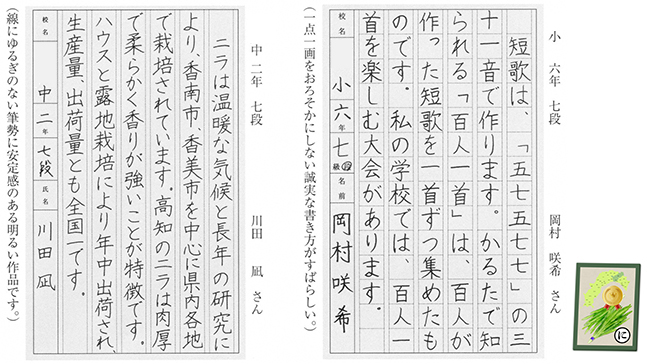 小 六年 七段
岡村 咲希 さん
短歌は、「五七五七七」の三
十一音で作ります。かるたで知
られる「百人一首」は、百人が
作った短歌を一首ずつ集めたも
のです。私の学校では、百人一
首を楽しむ大会があります。
校名
小六年七級段
名前
岡村咲希
(一点一画をおろそかにしない誠実な書き方がすばらしい。)
中 二年 七段
川田 凪 さん
ニラは温暖な気候と長年の研究に
より、香南市、香美市を中心に県内各地
で栽培されています。高知のニラは肉厚
で柔らかく香りが強いことが特徴です。
ハウスと露地栽培により年中出荷され、
生産量、出荷量とも全国一です。
校名
中二年七段
氏名
川田凪
(線にゆるぎのない筆勢に安定感のある明るい作品です。)
に